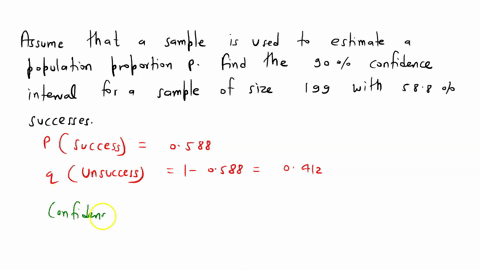 Assume that a sample is used to estimate a
population proportion P. Find the 90% confidence
interval for a sample of size 199 with 58.8%
successes.
P (success) = 0.588
q (Unsuccess) = 1 - 0.588 = 0.412
Confidenc